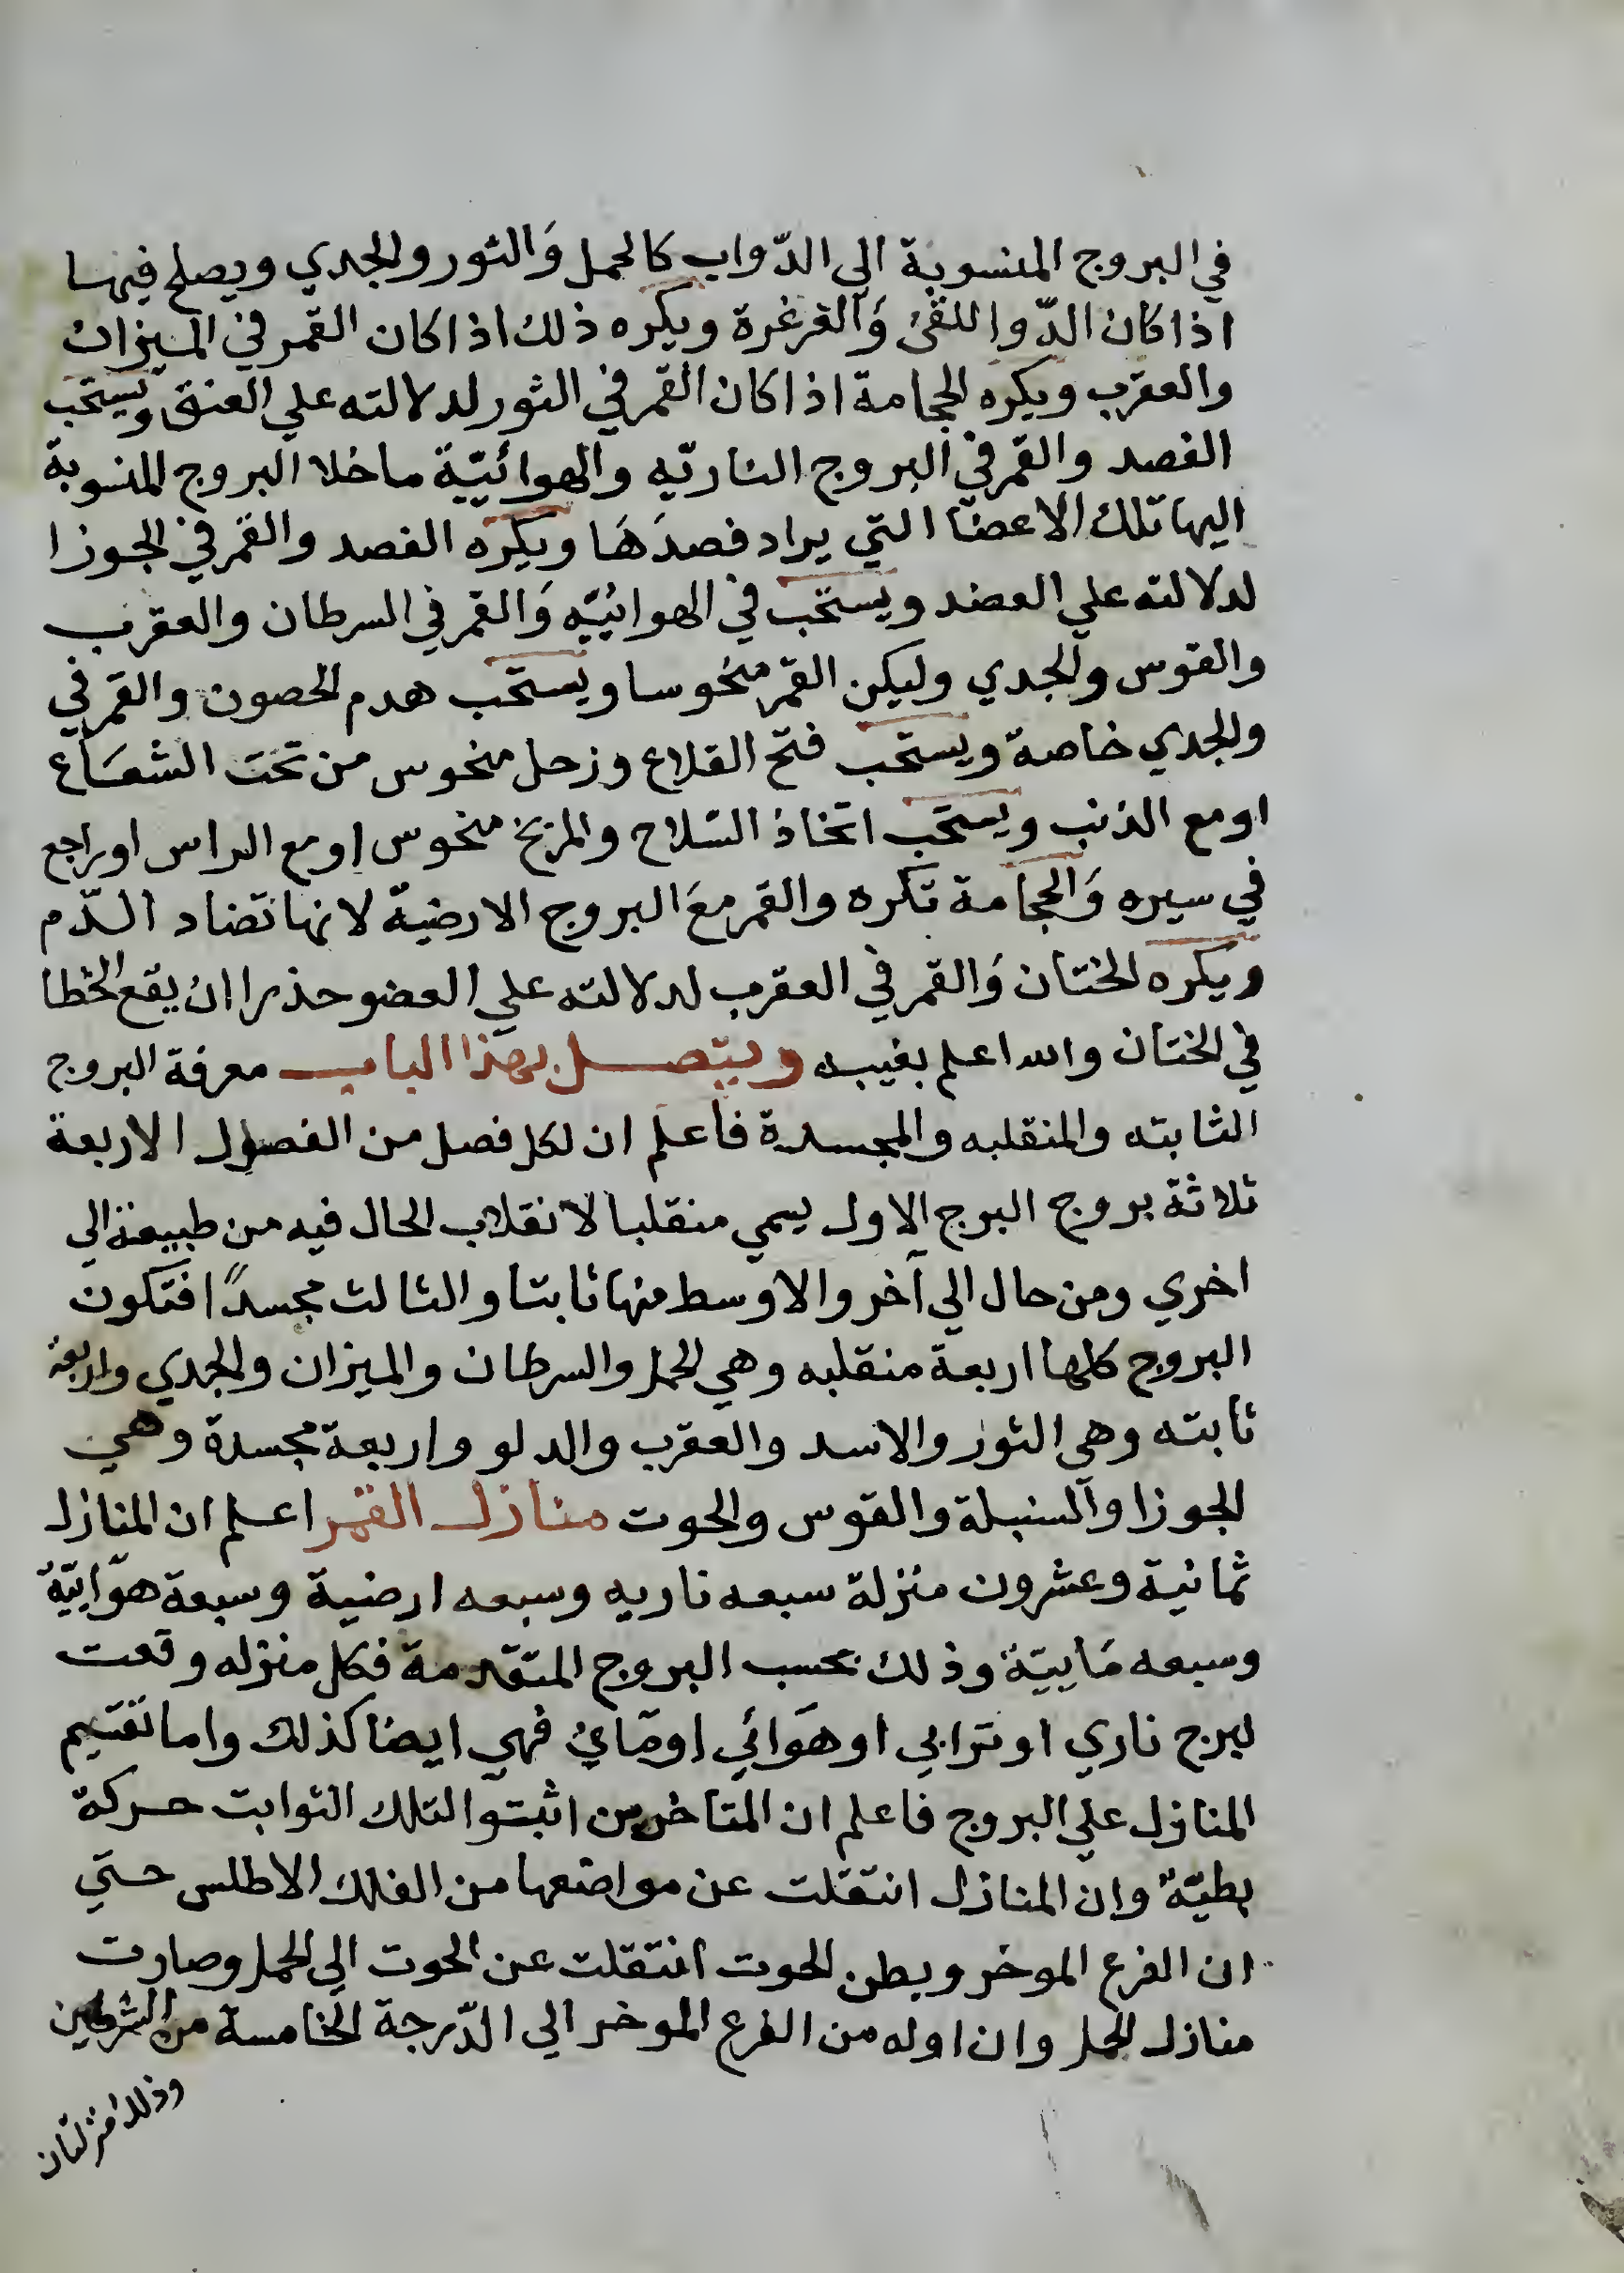 في البروج المنسوبة الي الدّواب كالحمل وَالثور والجدي ويصلح فيها
اذا كان الدّوا للقئ وَالغرغرة ويكره ذلك اذا كان القمر في الميزان
والعقرب ويكره الحجامة اذا كان القمر في الثور لدلالته علي العنق ويستحب
الفصد والقمر في البروج الناريّه والهوائيّة ما خلا البروج المنسوبة
اليها تلك الاعضا التي يراد فصدَهَا ويكره الفصد والقمر في الجوزا
لدلالته علي العضد ويستحب في الهوائيّه وَالقمر في السرطان والعقرب
والقوس والجدي وليكن القمر منحوسا ويستحب هدم الحصون والقمر في
والجدي خاصة ويستحب فتح القلاع وزحل منحوس من تحت الشعَاع
او مع الذنب ويستحب اتخاذ السّلاح والمريخ منحوس او مع الراس او راجع
في سيره وَالحجامة تكره والقمر معَ البروج الارضية لانها تضاد الدّم
ويكره الختان وَالقمر في العقرب لدلالته علي العضو حذرا ان يقع الخطا
في الختان والله اعلم بغيبه ويتصل بهذا الباب معرفة البروج
الثابته والمنقلبه والمجسدة فاعلم ان لكل فصل من الفصول الاربعة
ثلاثة بروج البرج الاول يسمي منقلبا لانقلاب الحال فيه من طبيعة الي
اخري ومن حال الي آخر والاوسط منها ثابتا والثالث مجسدًا فتكون
البروج كلها اربعة منقلبه وهي الحمل والسرطان والميزان والجدي واربعة
ثابته وهي الثور والاسد والعقرب والدلو واربعة مجسدة وهي
الجوزا والسنبلة والقوس والحوت منازل القمر اعلم ان المنازل
ثمانية وعشرون منزلة سبعه ناريه وسبعه ارضية وسبعة هوَايّة
وسبعه مَاييّة وذلك بحسب البروج المتقدمة فكل منزله وقعت
لبرج ناري او ترابي او هوَائي او مَائي فهي ايضا كذلك واما تقسيم
المنازل علي البروج فاعلم ان المتاخرين اثبتوا لتلك الثوابت حركة
بطيّة وان المنازل انتقلت عن مواضعها من الفلك الاطلس حتي
ان الفرع الموخر وبطن الحوت انتقلت عن الحوت الي الحمل وصارت
منازل الحمل وان اوله من الفرع الموخر الي الدّرجة الخامسة من الشرطين
وذلك منزلتان